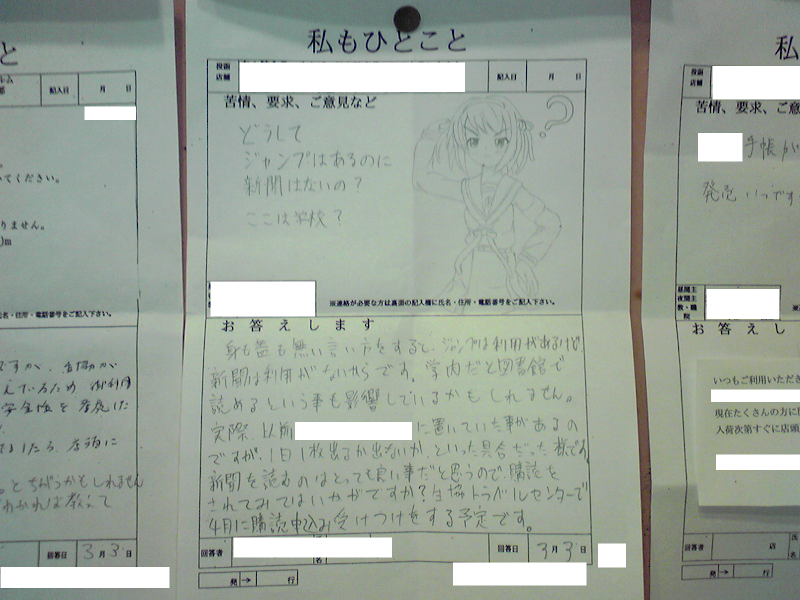 と
記入日 月 日
てください。
りません。
)m
氏名・住所・電話番号をご記入下さい。
ですが、
えているため
回答日 3月3日
私もひとこと
投函店舗
記入日 月 日
苦情、要求、ご意見など
どうして
ジャンプはあるのに
新聞はないの?
ここは学校?
?
※連絡が必要な方は裏面の記入欄に氏名・住所・電話番号をご記入下さい。
お答えします
身も蓋も無い言い方をすると、ジャンプは利用があるけど
新聞は利用がないからです。学内だと図書館で
読めるという事も影響しているかもしれません。
実際、以前 に置いていた事があるの
ですが、1日1枚出るか出ないか、といった具合だった様です。
新聞を読むのはとっても良い事だと思うので、購読を
されてみてはいかがですか?生協トラベルセンターで
4月に購読申込み受けつけをする予定です。
回答者
氏名
回答日 3月3日
発→ 行
私
投函店舗
苦情、要求、ご意
手帳が
発売いつです
昼間主
夜間主
教・職
院
お答えし
いつもご利用いただき
現在たくさんの方に
入荷次第すぐに店頭
回答者 店
氏名
発→ 行